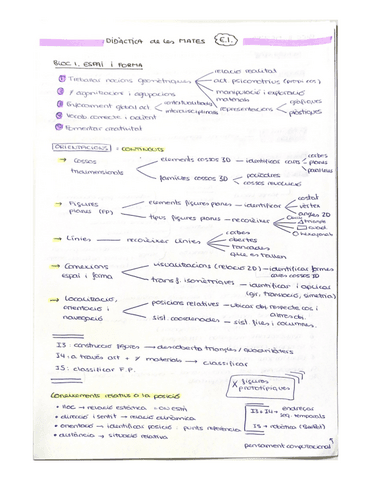 DIDÀCTICA de les MATES E.I.
BLOC 1. ESPAI i FORMA
Treballar nocions geomètriques
relació realitat
act. psicomotrius (prèvia cos)
manipulació i exploració materials
y agrupacions
Enfocament global act
interdisciplinars
representacions
gràfiques
plàstiques
Vocab correcte i adient
Fomentar creativitat
ORIENTACIONS: CONTINGUTS
Cossos tridimensionals
elements cossos 3D
identificar cares
corbes
planes
paral·leles
famílies cossos 3D
poliedres
cossos revolució
Figures planes (FP)
elements figures planes
identificar
costat
vèrtex
angles 2D
tipus figures planes
reconèixer
triangle
quad.
hexagonal
Línies
reconèixer línies
corbes
obertes
tancades
que es tallen
Connexions espai i forma
visualitzacions (relació 2D)
identificar formes cares cossos 3D
transf. isomètriques
identificar i aplicar (gir, translació, simetria)
Localització, orientació i navegació
posicions relatives
ubicar dos respecte cos i altres obj.
sist. coordenades
sist. files i columnes.
I3: construcció figures
descoberta triangles / quadrilàters
I4: a través art + y materials
classificar
I5: classificar F.P.
X figures prototípiques
Coneixements relatius a la posició
lloc → relació estàtica - on està
direcció i sentit → relació dinàmica
orientació → identificar posició: punts referència
distància → situació relativa
I3 + I4 → endreçar seq. temporals
I5 → robòtica (BeeBot)
pensament computacional